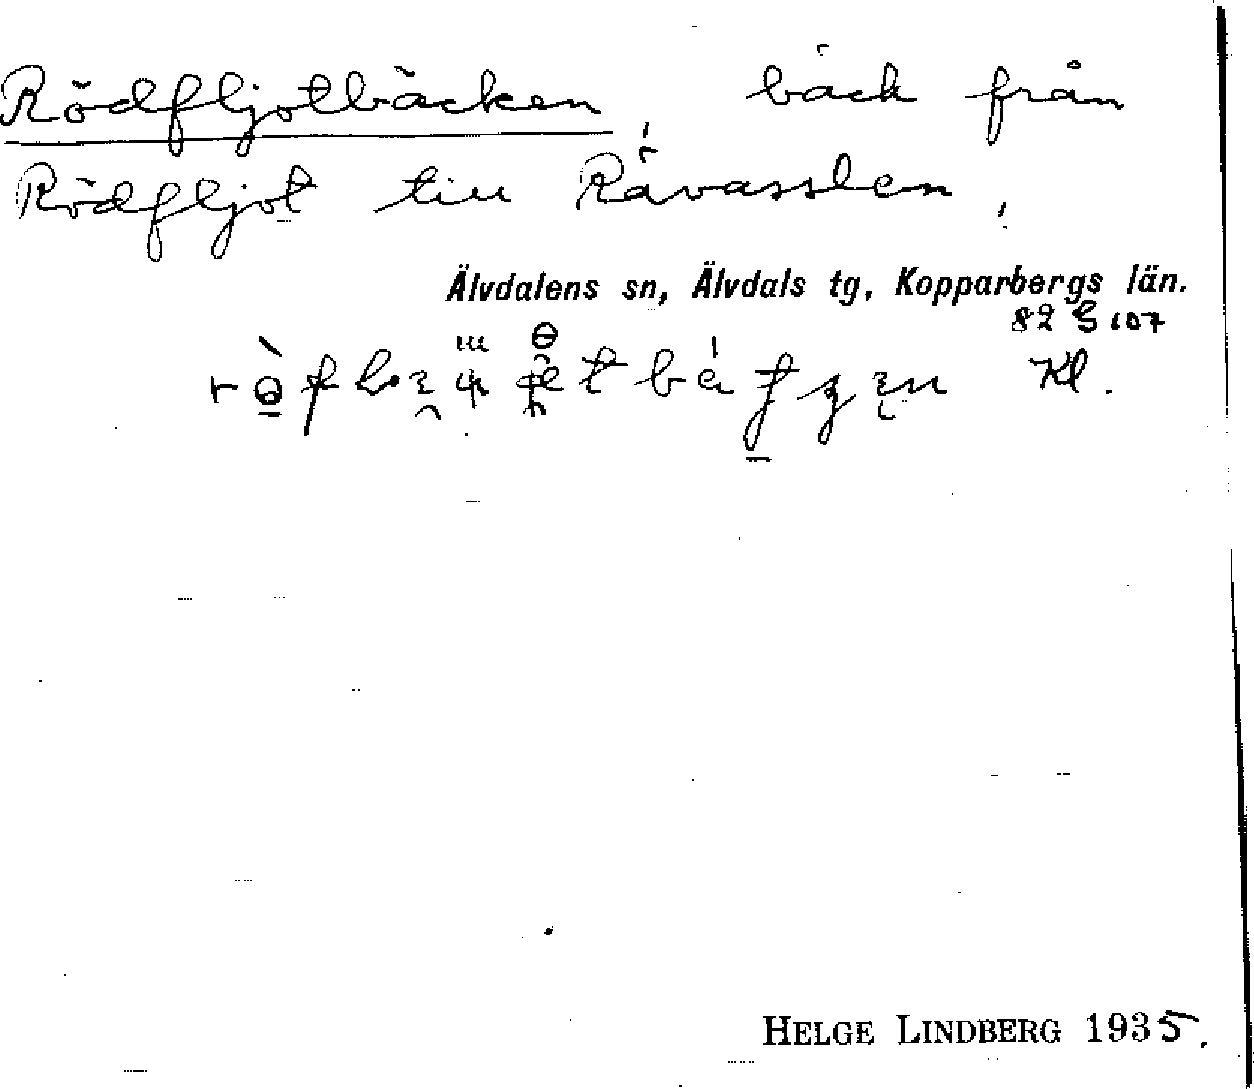 Rödfljotbäcken bäck från
Rödfljot till Rävasslen,
Älvdalens sn, Älvdals tg, Kopparbergs län.
82 G 107
Kl.
HELGE LINDBERG 1935.